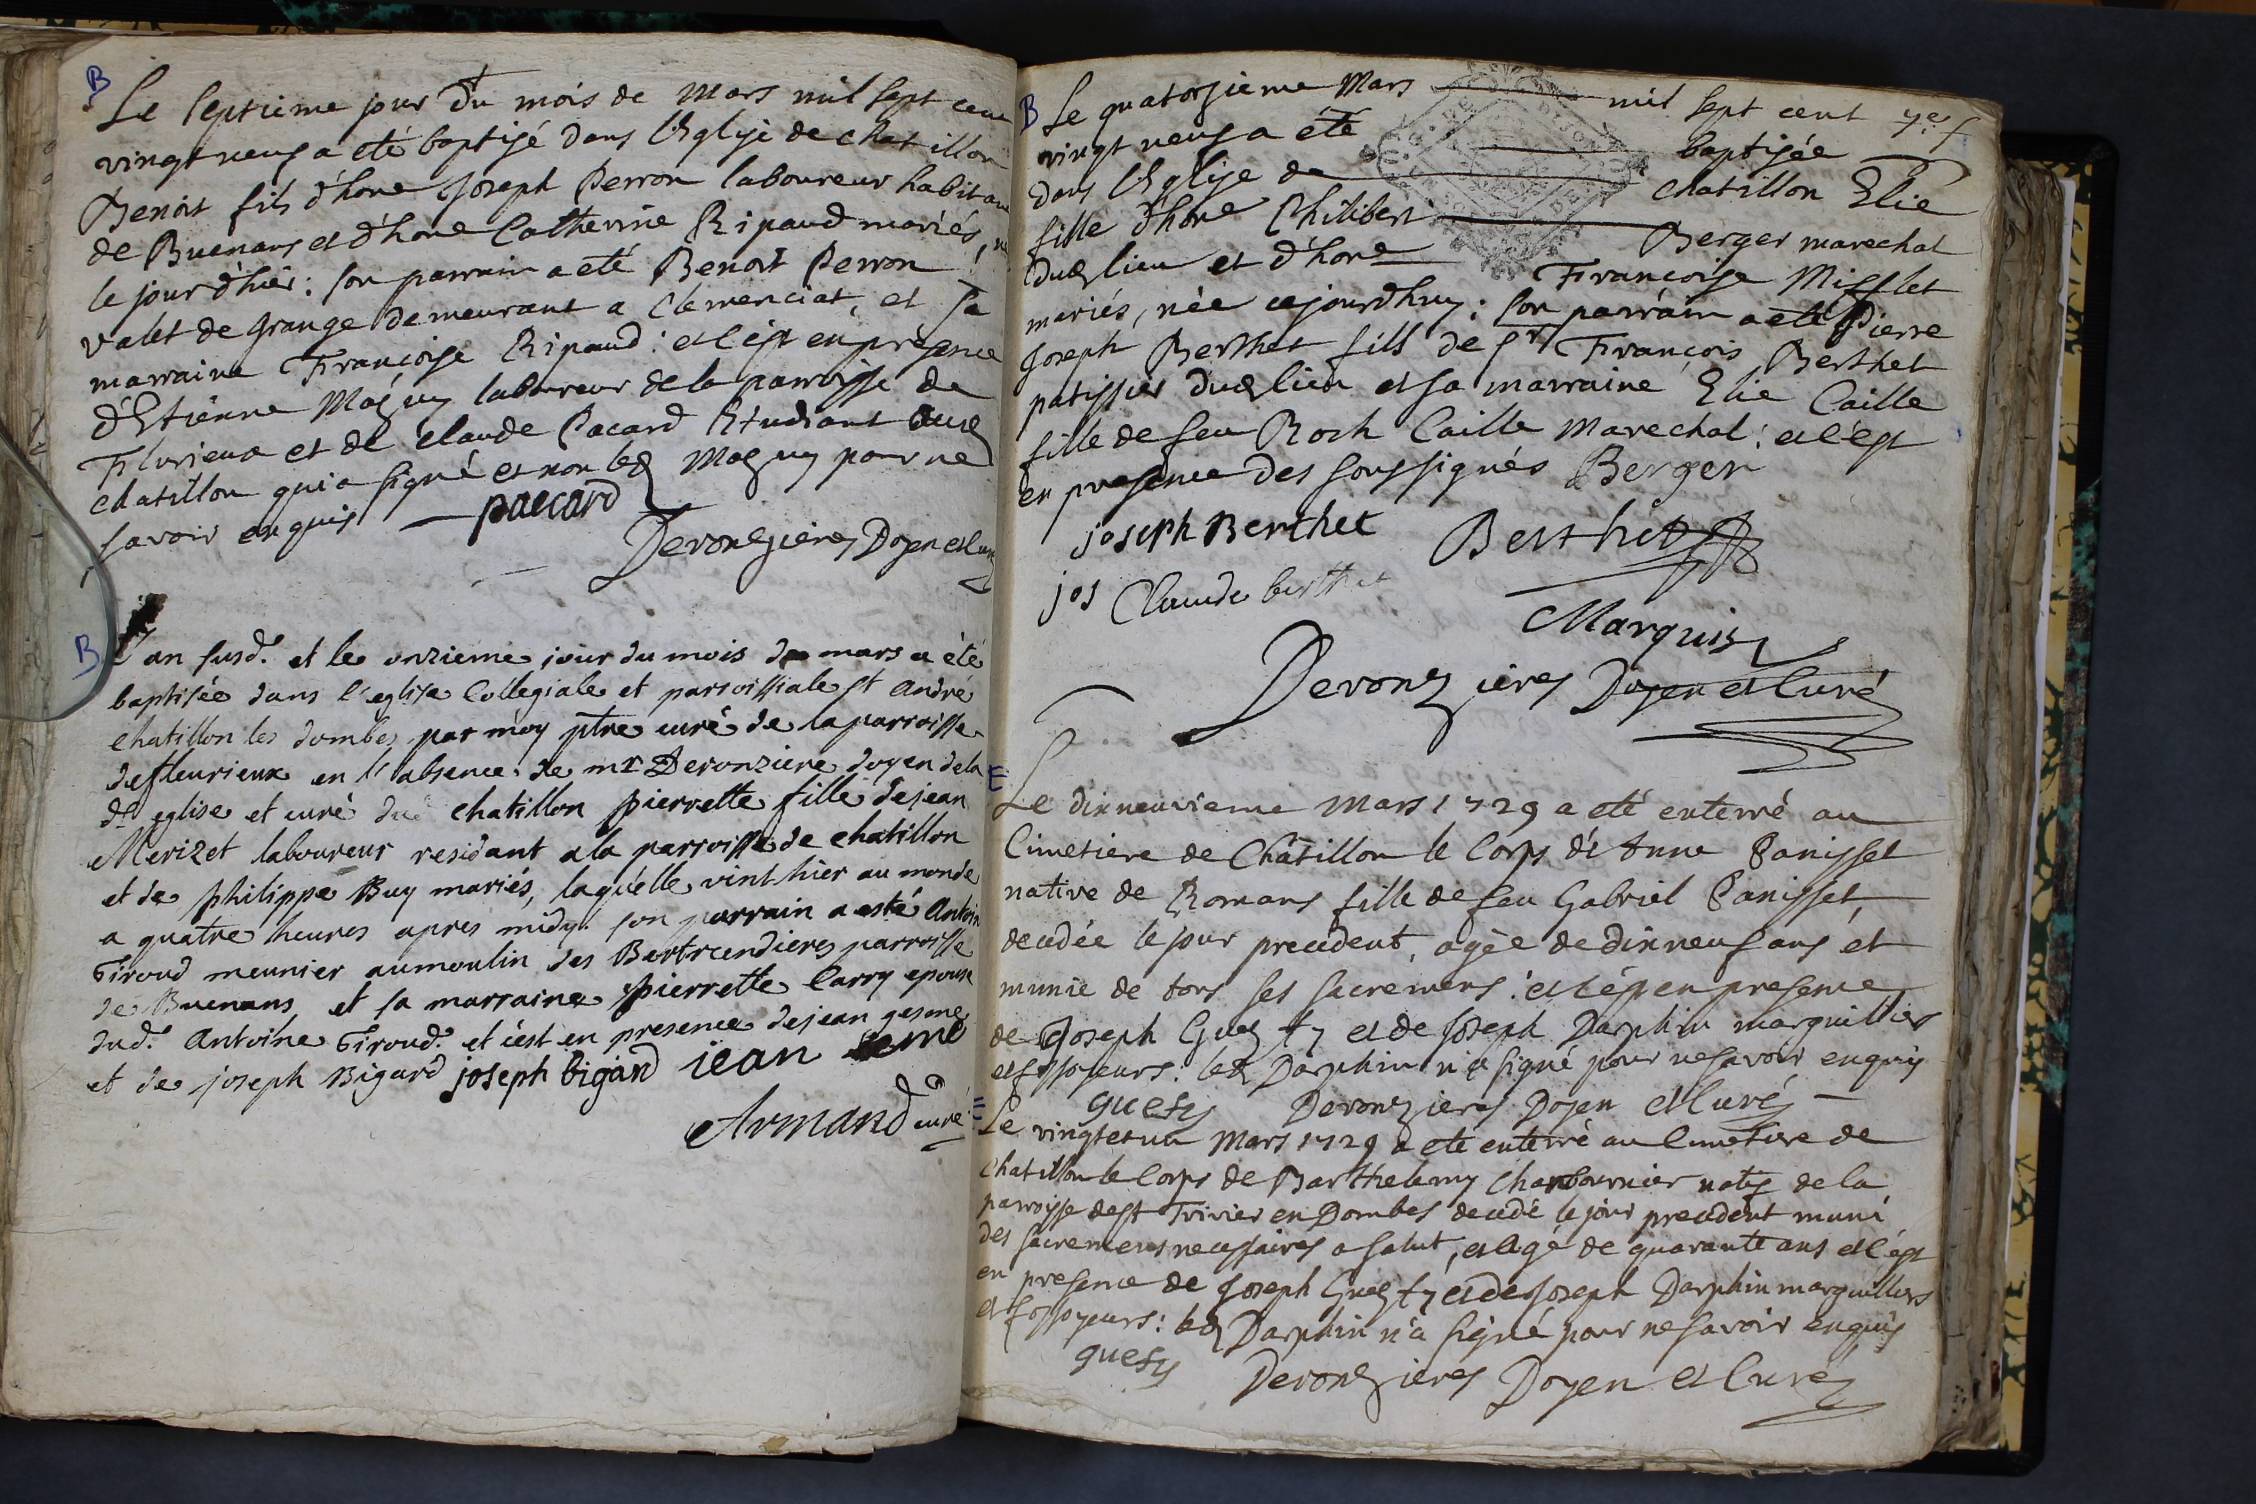 B
Le septieme jour du mois de Mars mil sept cent
vingt neuf a eté baptisé dans l'Eglise de chatillon
Benoit fils d'hone Joseph Perron laboureur habitant
de Buenans et d'hone Catherine Ripaud mariés, né
le jour d'hier: son parrain a eté Benoit Perron
valet de grange demeurant a Clemenciat, et sa
marraine Françoise Ripaud: et c'est en presence
d'Etienne Maguy laboureur de la parroisse de
Flurieux et de claude Pacard Etudiant dud
chatillon qui a signé et non led Maguy pour ne
savoir enquis
paccard
Deronzieres Doyen et Curé
B
L'an susd. et le onzieme jour du mois de mars a été
baptisée dans l'eglise Collegiale et parroissiale st André
chatillon les dombes par moy ptre curé de la parroisse
de fleurieux en l'absence de mr Deronziere doyen de la
de eglise et curé dud chatillon pierrette fille de jean
Merizet laboureur residant a la parroisse de chatillon
et de philippe Buy mariés, laquelle vint hier au monde
a quatre heures apres midy. son parrain a esté Antoine
Giroud meunier au moulin des Bertrandieres parroisse
de Buenans et sa marraine pierrette Carry epouse
dud. Antoine Giroud. et c'est en presence de jean gesme
et de joseph Bigard joseph bigard iean
Armand curé
B
Le quatorzieme Mars mil sept cent
vingt neuf a été baptisée
dans l'Eglise de chatillon Elie
fille d'hone Philibert Berger marechal
dud lieu et d'hone Françoise Mifflet
mariés, née cejourdhuy: son parrain a eté Pierre
Joseph Berthet fils de sr François Berthet
patissier dud lieu et sa marraine Elie Caille
fille de feu Roch Caille Marechal: et c'est
en presence des soussignés Berger
joseph Berthet Berthet
jos Claude berthet
Marquis
Deronzieres Doyen et Curé
Le dixneuvieme Mars 1729 a eté enterré au
Cimetiere de Châtillon le Corps d'Anne Panisset
native de Romans fille de feu Gabriel Panisset,
decedée le jour precedent, agée de dixneuf ans et
munie de tous ses sacremens: et c'est en presence
de Joseph Guesty et de Joseph Darphin marguilliers
et fossoyeurs. led Darphin n'a signé pour ne savoir enquis
guesty Deronzieres Doyen et Curé
Le vingt et un Mars 1729 a eté enterré au Cimetiere de
Chatillon le Corps de Barthelemy Charbournier natif de la
parroisse de st Trivier en Dombes decedé le jour precedent muni
des sacremens necessaires a salut, et agé de quarante ans et c'est
en presence de Joseph Guesty et de Joseph Darphin marguilliers
et fossoyeurs: led Darphin n'a signé pour ne savoir enquis
guesty Deronzieres Doyen et Curé